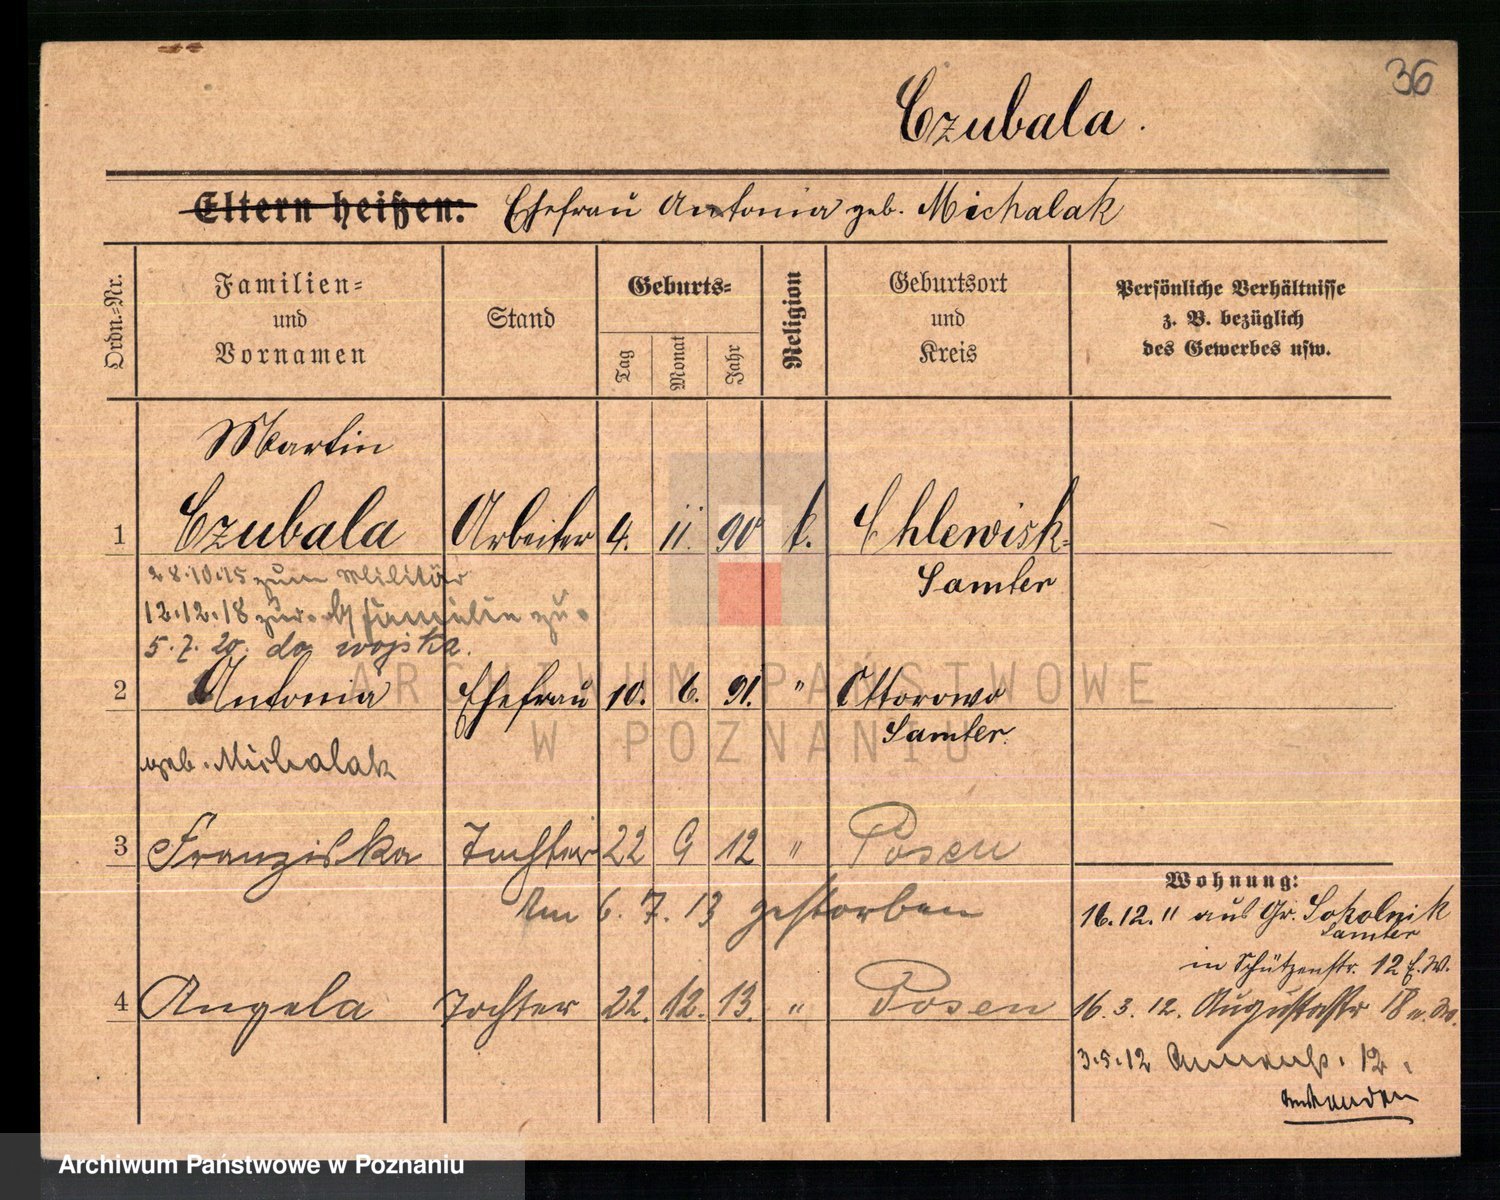 36
Czubala.
Eltern heißen: Ehefrau Antonia geb. Michalak
Ordn.-Nr.
Familien- und Vornamen
Stand
Geburts-
Tag
Monat
Jahr
Religion
Geburtsort und Kreis
Persönliche Verhältnisse
z. B. bezüglich
des Gewerbes usw.
Martin
1 Czubala Arbeiter 4. 11. 90 k. Chlewisk-
Samter
28.10.15 zum Militär
12.12.18 zur. Familie zu.
5.7.20. do wojska.
2 Antonia Ehefrau 10. 6. 91. " Ottorowo
Samter.
geb. Michalak
3 Franziska Tochter 22 9 12 " Posen
Am 6.7.13 gestorben
4 Angela Tochter 22. 12. 13. " Posen
Wohnung:
16.12.11 aus Gr. Sokolnik
Samter
in Schützenstr. 12 b. W.
16.3.12. Augustastr 18
3.5.12 12.
ARCHIWUM PAŃSTWOWE
W POZNANIU
Archiwum Państwowe w Poznaniu